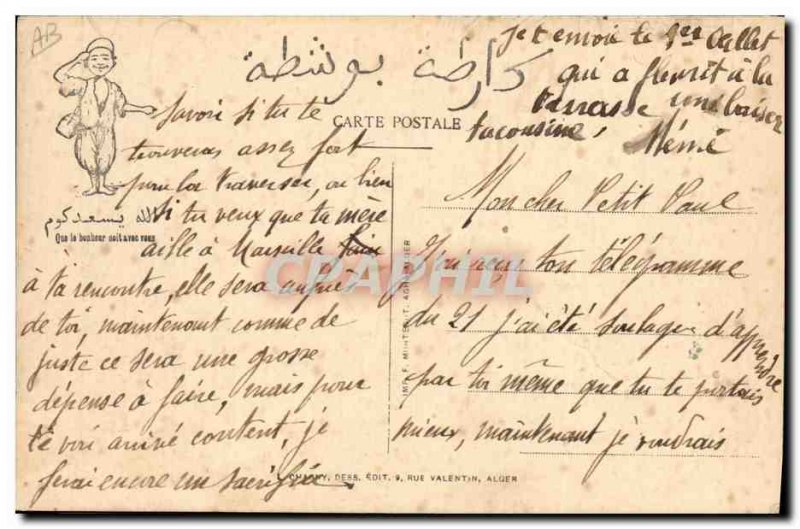 AB
كارطة بوسطة
CARTE POSTALE
الله يسعدكوم
Que le bonheur soit avec vous
Je t'envoie le 1er œillet
qui a fleurit à la
terrasse une baiser
ta cousine, Mémé
Mon cher Petit Paul
J'ai reçu ton télégramme
du 21 j'ai été soulagée d'apprendre
par toi même que tu te portais
mieux, maintenant je voudrais
savoir si tu te
trouveras assez fort
pour la traversée, ou bien
si tu veux que ta mère
aille à Marseille
à ta rencontre, elle sera auprès
de toi, maintenant comme de
juste ce sera une grosse
dépense à faire, mais pour
te voir arrivé content, je
ferai encore un sacrifice
IMP. F. MONTÉGUT
DESS. ÉDIT. 9, RUE VALENTIN, ALGER
CPAPHIL